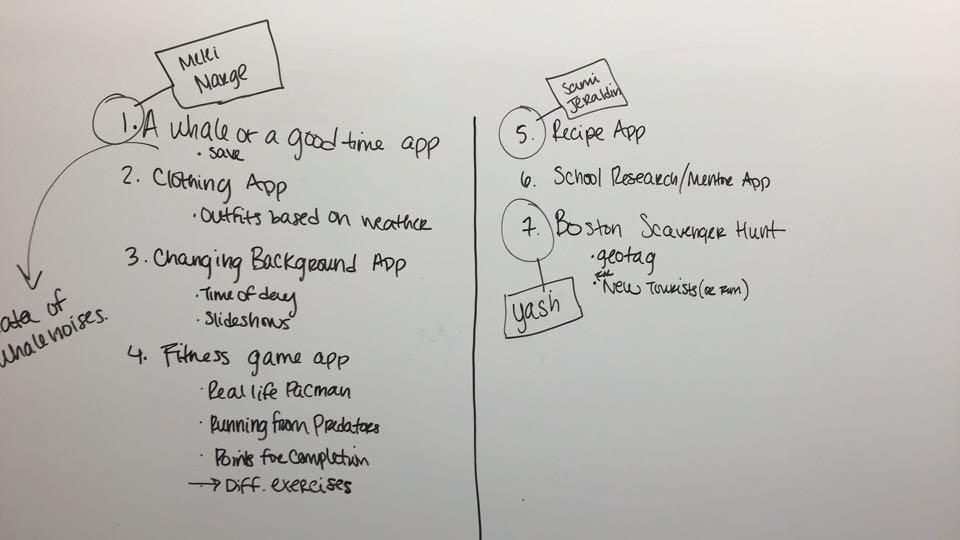 Meki
Marge
1. A whale of a good time app
• save
2. Clothing App
• Outfits based on weather
3. Changing Background App
• Time of day
• Slideshows
4. Fitness game app
• Real life Pacman
• Running from Predators
• Points for Completion
→ Diff. exercises
ata of
whale noises.
Sami
Jeraldin
5. Recipe App
6. School Research/Mentor App
7. Boston Scavenger Hunt
• geotag
• for New Tourists (or Fam)
yash